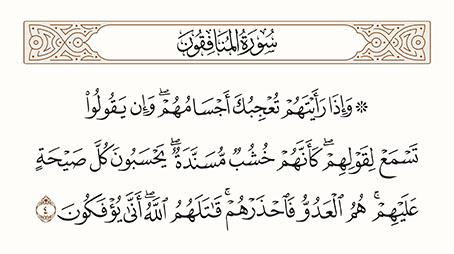 سُورَةُ المُنَافِقُونَ
۞ وَإِذَا رَأَيۡتَهُمۡ تُعۡجِبُكَ أَجۡسَامُهُمۡۖ وَإِن يَقُولُواْ
تَسۡمَعۡ لِقَوۡلِهِمۡۖ كَأَنَّهُمۡ خُشُبٞ مُّسَنَّدَةٞۖ يَحۡسَبُونَ كُلَّ صَيۡحَةٍ
عَلَيۡهِمۡۚ هُمُ ٱلۡعَدُوُّ فَٱحۡذَرۡهُمۡۚ قَٰتَلَهُمُ ٱللَّهُۖ أَنَّىٰ يُؤۡفَكُونَ ٤